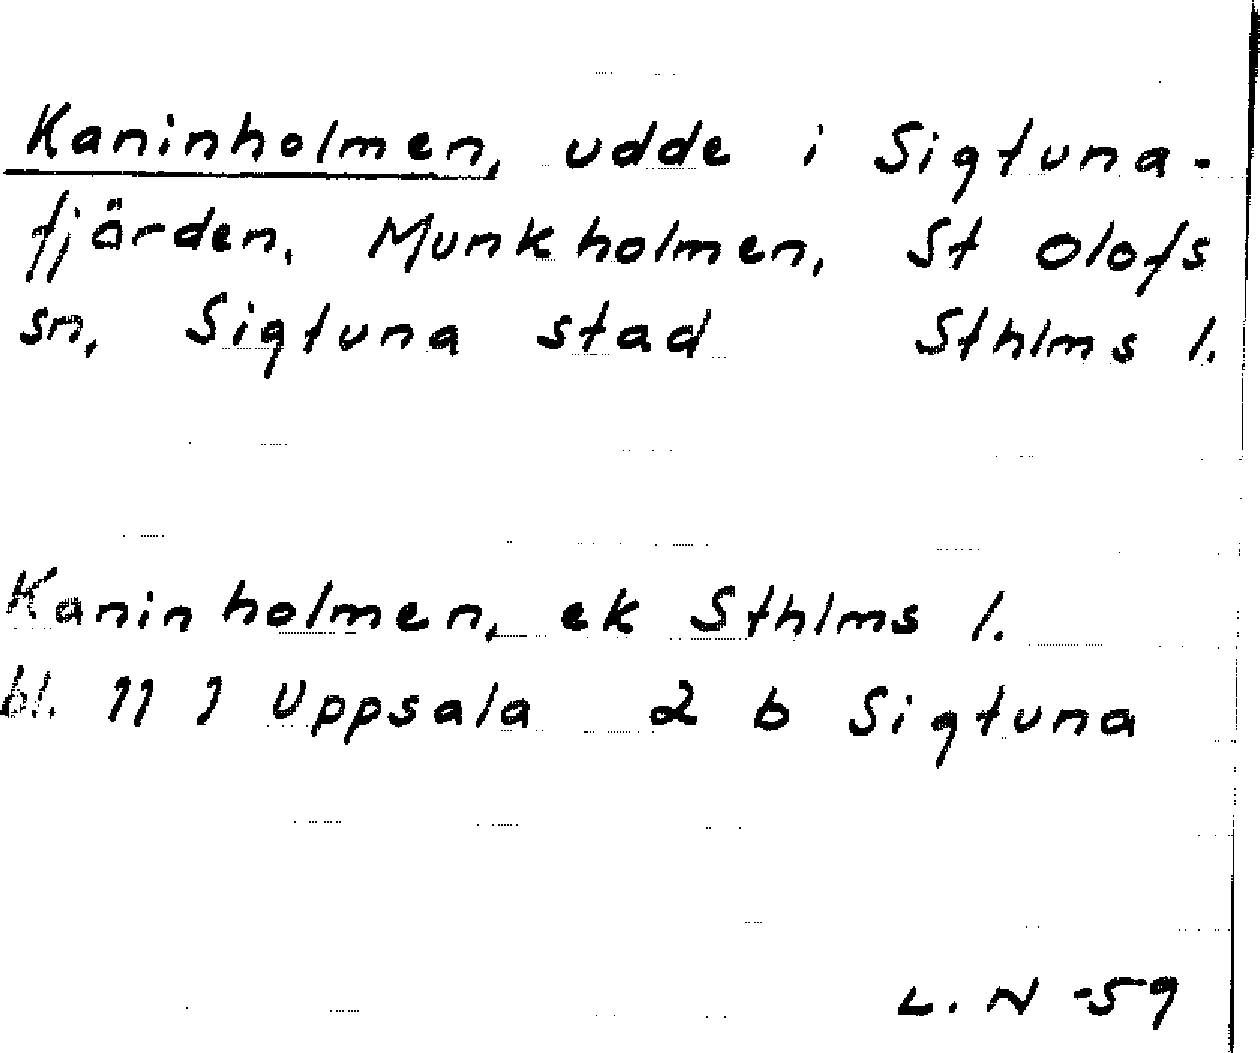 Kaninholmen, udde i Sigtuna-
fjärden, Munkholmen, St Olofs
sn, Sigtuna stad Sthlms l.
Kaninholmen, ek Sthlms l.
bl. 11 1 Uppsala 2 b Sigtuna
L. N -59